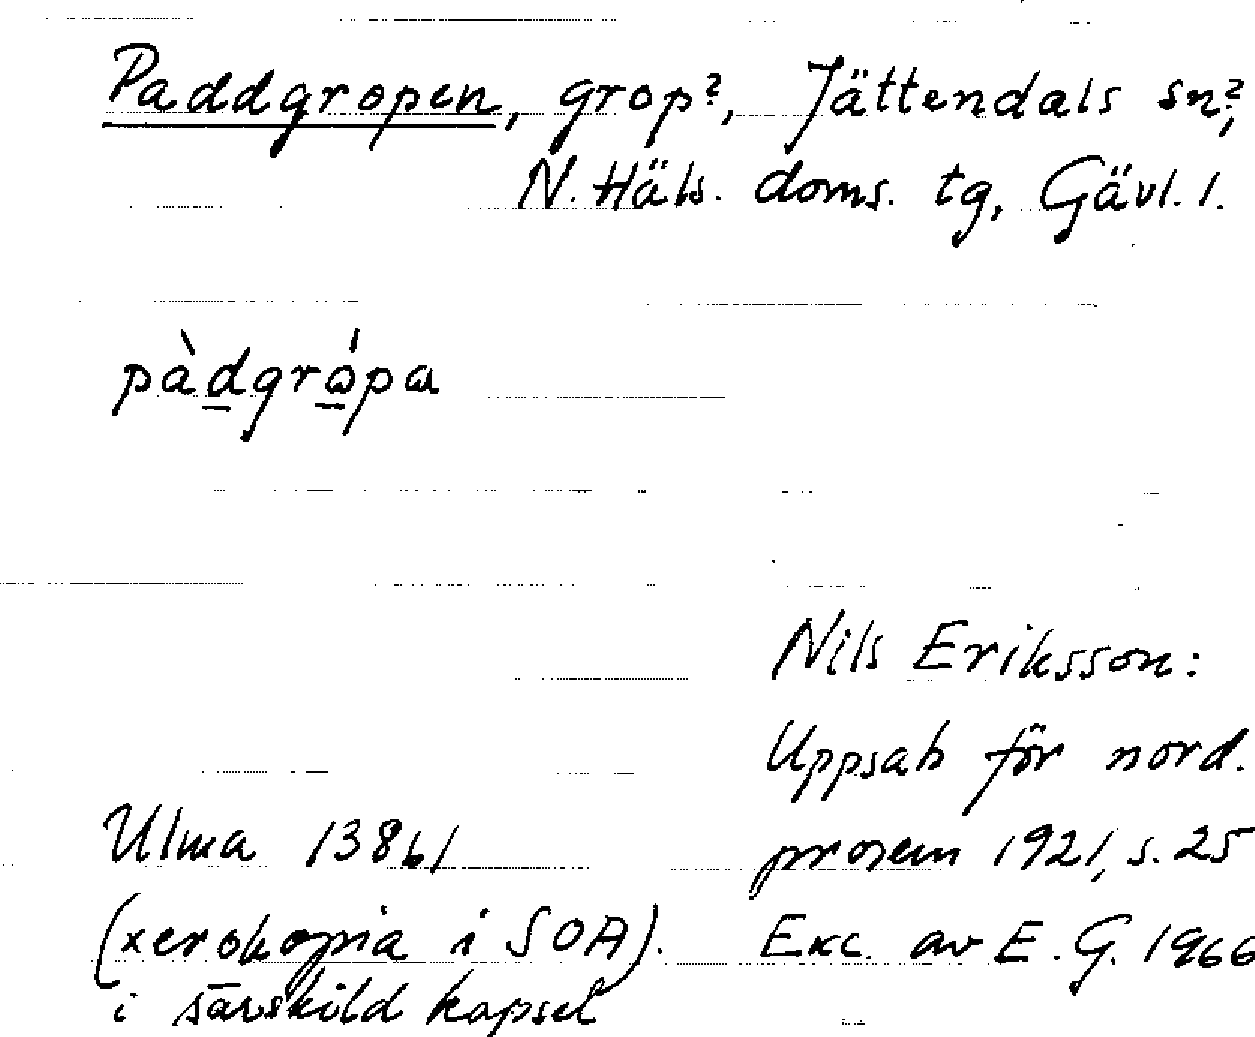 Paddgropen, grop?, Jättendals sn?,
N. Häls. doms. tg, Gävl. l.
pàdgrópa
Nils Eriksson:
Uppsats för nord.
prosem 1921, s. 25
Ulma 13861
(xerokopia i SOA).
i särskild kapsel
Exc. av E. G. 1966